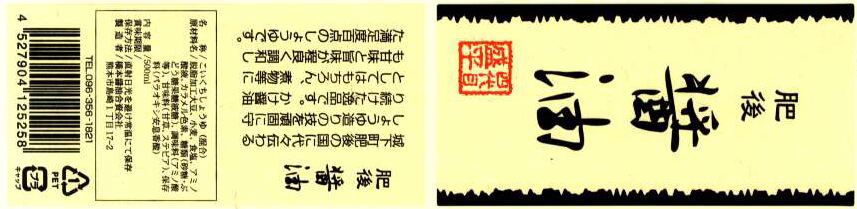 肥後
醤油
肥後
醤油
城下町肥後の国に代々伝わる
しょうゆ造りの技を頑固に守
り続けた逸品です。かけ醤油
としてはもちろん、煮物等に
も甘味と旨味が程良く調和し
た満足度百点のしょうゆです。
名 称/こいくちしょうゆ(混合)
原材料名/脱脂加工大豆、小麦、食塩、アミノ
酸液、カラメル色素、糖類(砂糖・ぶ
どう糖果糖液糖)、調味料(アミノ酸
等)、甘味料(甘草、ステビア)、保存
料(パラオキシ安息香酸)
内 容 量/500ml
賞味期限
保存方法/直射日光を避け常温にて保存
製 造 者/橋本醤油合資会社
熊本市島崎1丁目17-2
TEL.096-356-1821
4 527904 125268
1
PET
プラ
キャップ